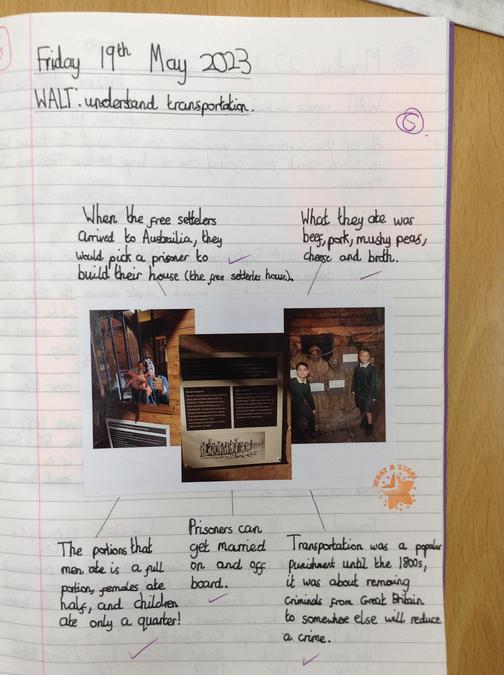 Friday 19th May 2023
WALT: understand transportation.
When the free settelers
arrived to Austrilia, they
would pick a prisoner to
build their house (the free setteries house).
What they ate was
beef, pork, mushy peas,
cheese and broth.
WHAT A STAR!
The portions that
men ate is a full
portion, females ate
half, and children
ate only a quarter!
Prisoners can
get married
on and off
board.
Transportation was a popular
punishment until the 1800s,
it was about removing
criminals from Great Britain
to somewhere else will reduce
a crime.